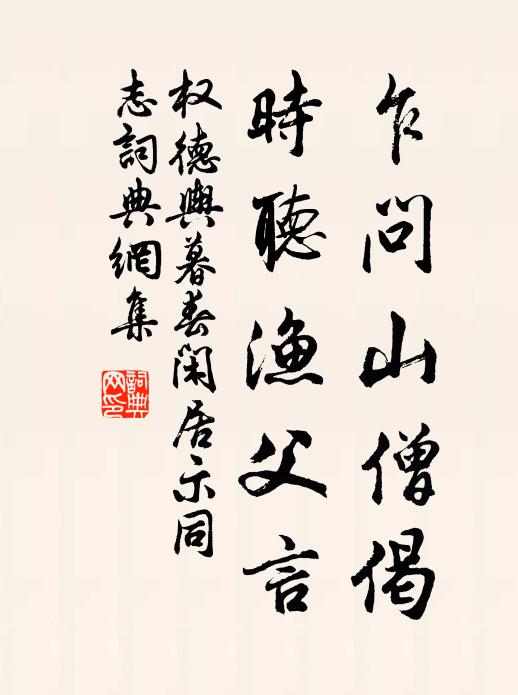 乍問山僧偈
時聽漁父言
权德輿暮春閑居示同
志詞典網集
詞典
网印